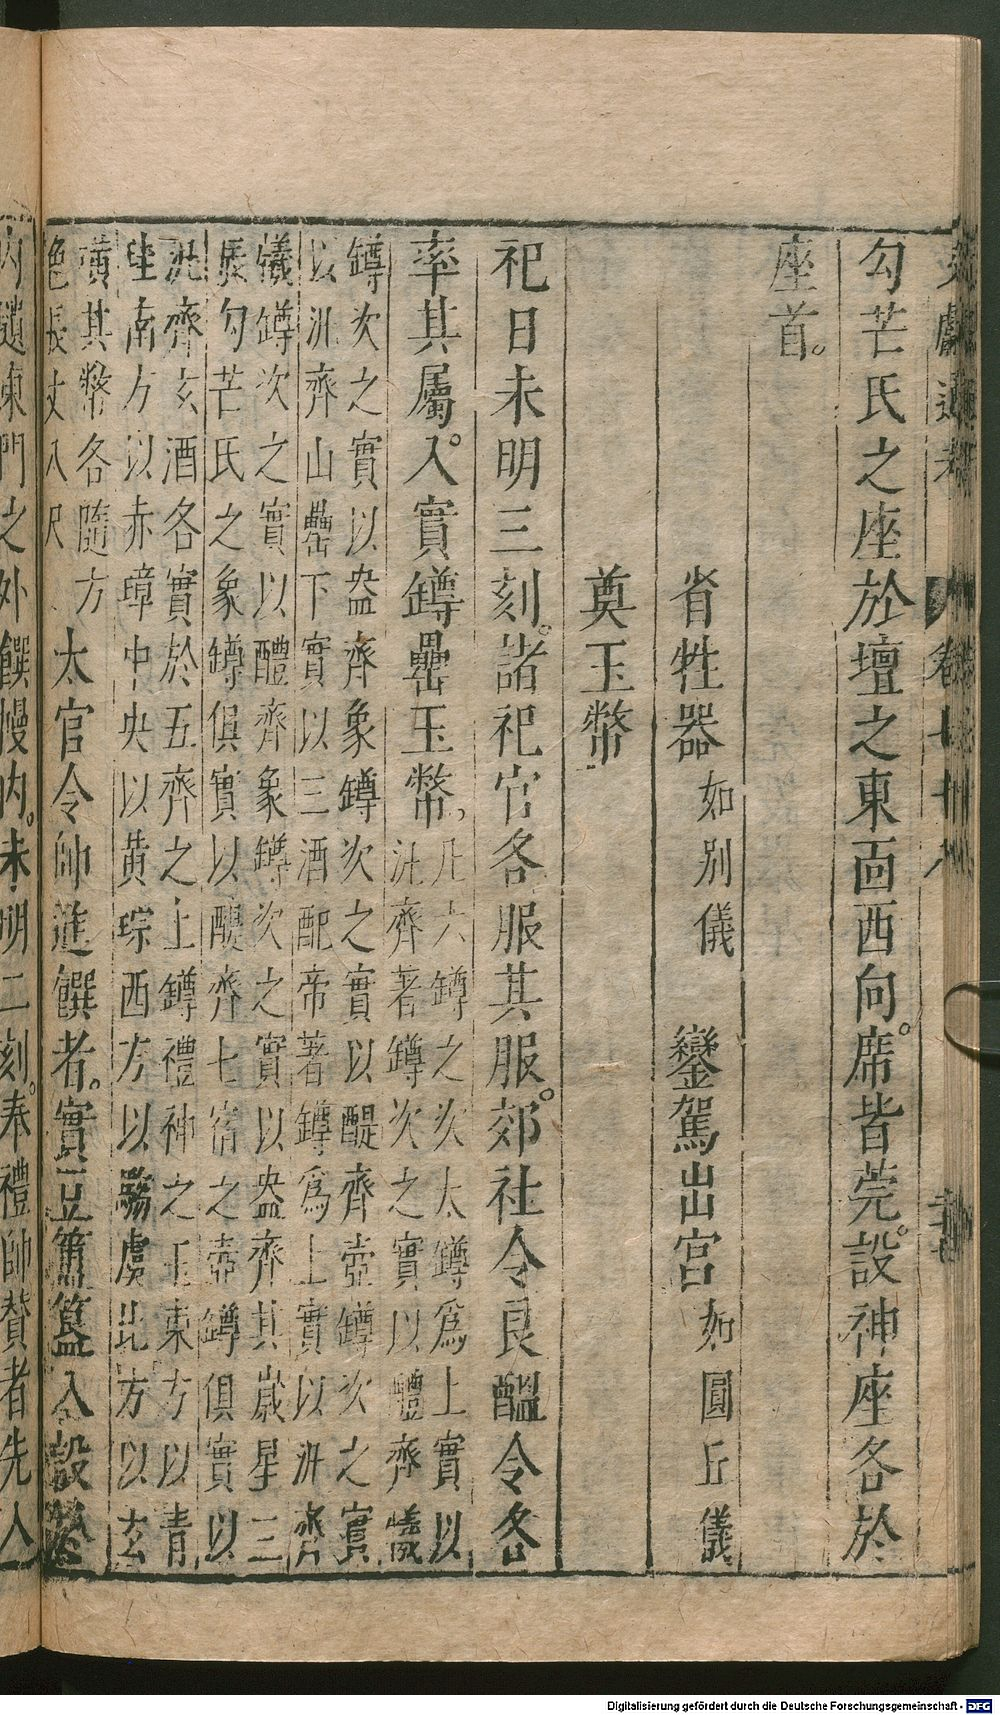 勾芒氏之座於壇之東面西向。席皆莞。設神座各於
座首。
省牲器如別儀　鑾駕出宮如圓丘儀
奠玉幣
祀日未明三刻。諸祀官各服其服。郊社令良醞令各
率其屬。入實罇罍玉幣，
凡六罇之次太罇爲上實以
汎齊著罇次之實以醴齊犧
罇次之實以盎齊象罇次之實以醍齊壺罇次之實
以沉齊山罍下實以三酒配帝著罇爲上實以汎齊
犧罇次之實以醴齊象罇次之實以盎齊其歲星三
辰勾芒氏之象罇俱實以醍齊七宿之壺罇俱實以
沉齊玄酒各實於五齊之上罇禮神之玉東方以青
珪南方以赤璋中央以黄琮西方以騶虞北方以玄
璜其幣各隨方
色長丈八尺
太官令帥進饌者。實豆籩簋入設於
內壝東門之外饌幔內。未明二刻。奉禮帥贊者先入
Digitalisierung gefördert durch die Deutsche Forschungsgemeinschaft - DFG